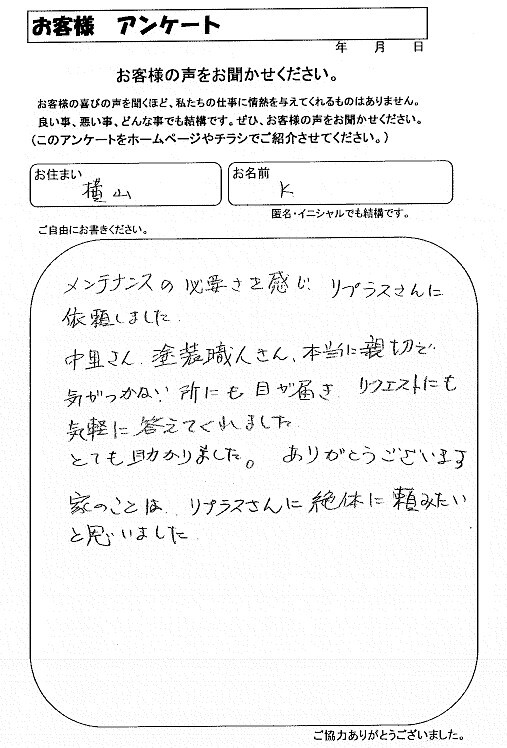 お客様 アンケート
年 月 日
お客様の声をお聞かせください。
お客様の喜びの声を聞くほど、私たちの仕事に情熱を与えてくれるものはありません。
良い事、悪い事、どんな事でも結構です。ぜひ、お客様の声をお聞かせください。
(このアンケートをホームページやチラシでご紹介させてください。)
お住まい 横山
お名前 K
匿名・イニシャルでも結構です。
ご自由にお書きください。
メンテナンスの必要さを感じ リプラスさんに
依頼しました
中里さん、塗装職人さん、本当に親切で
気がつかない所にも目が届き リクエストにも
気軽に答えてくれました
とても助かりました。 ありがとうございます
家のことは リプラスさんに絶体に頼みたい
と思いました
ご協力ありがとうございました。